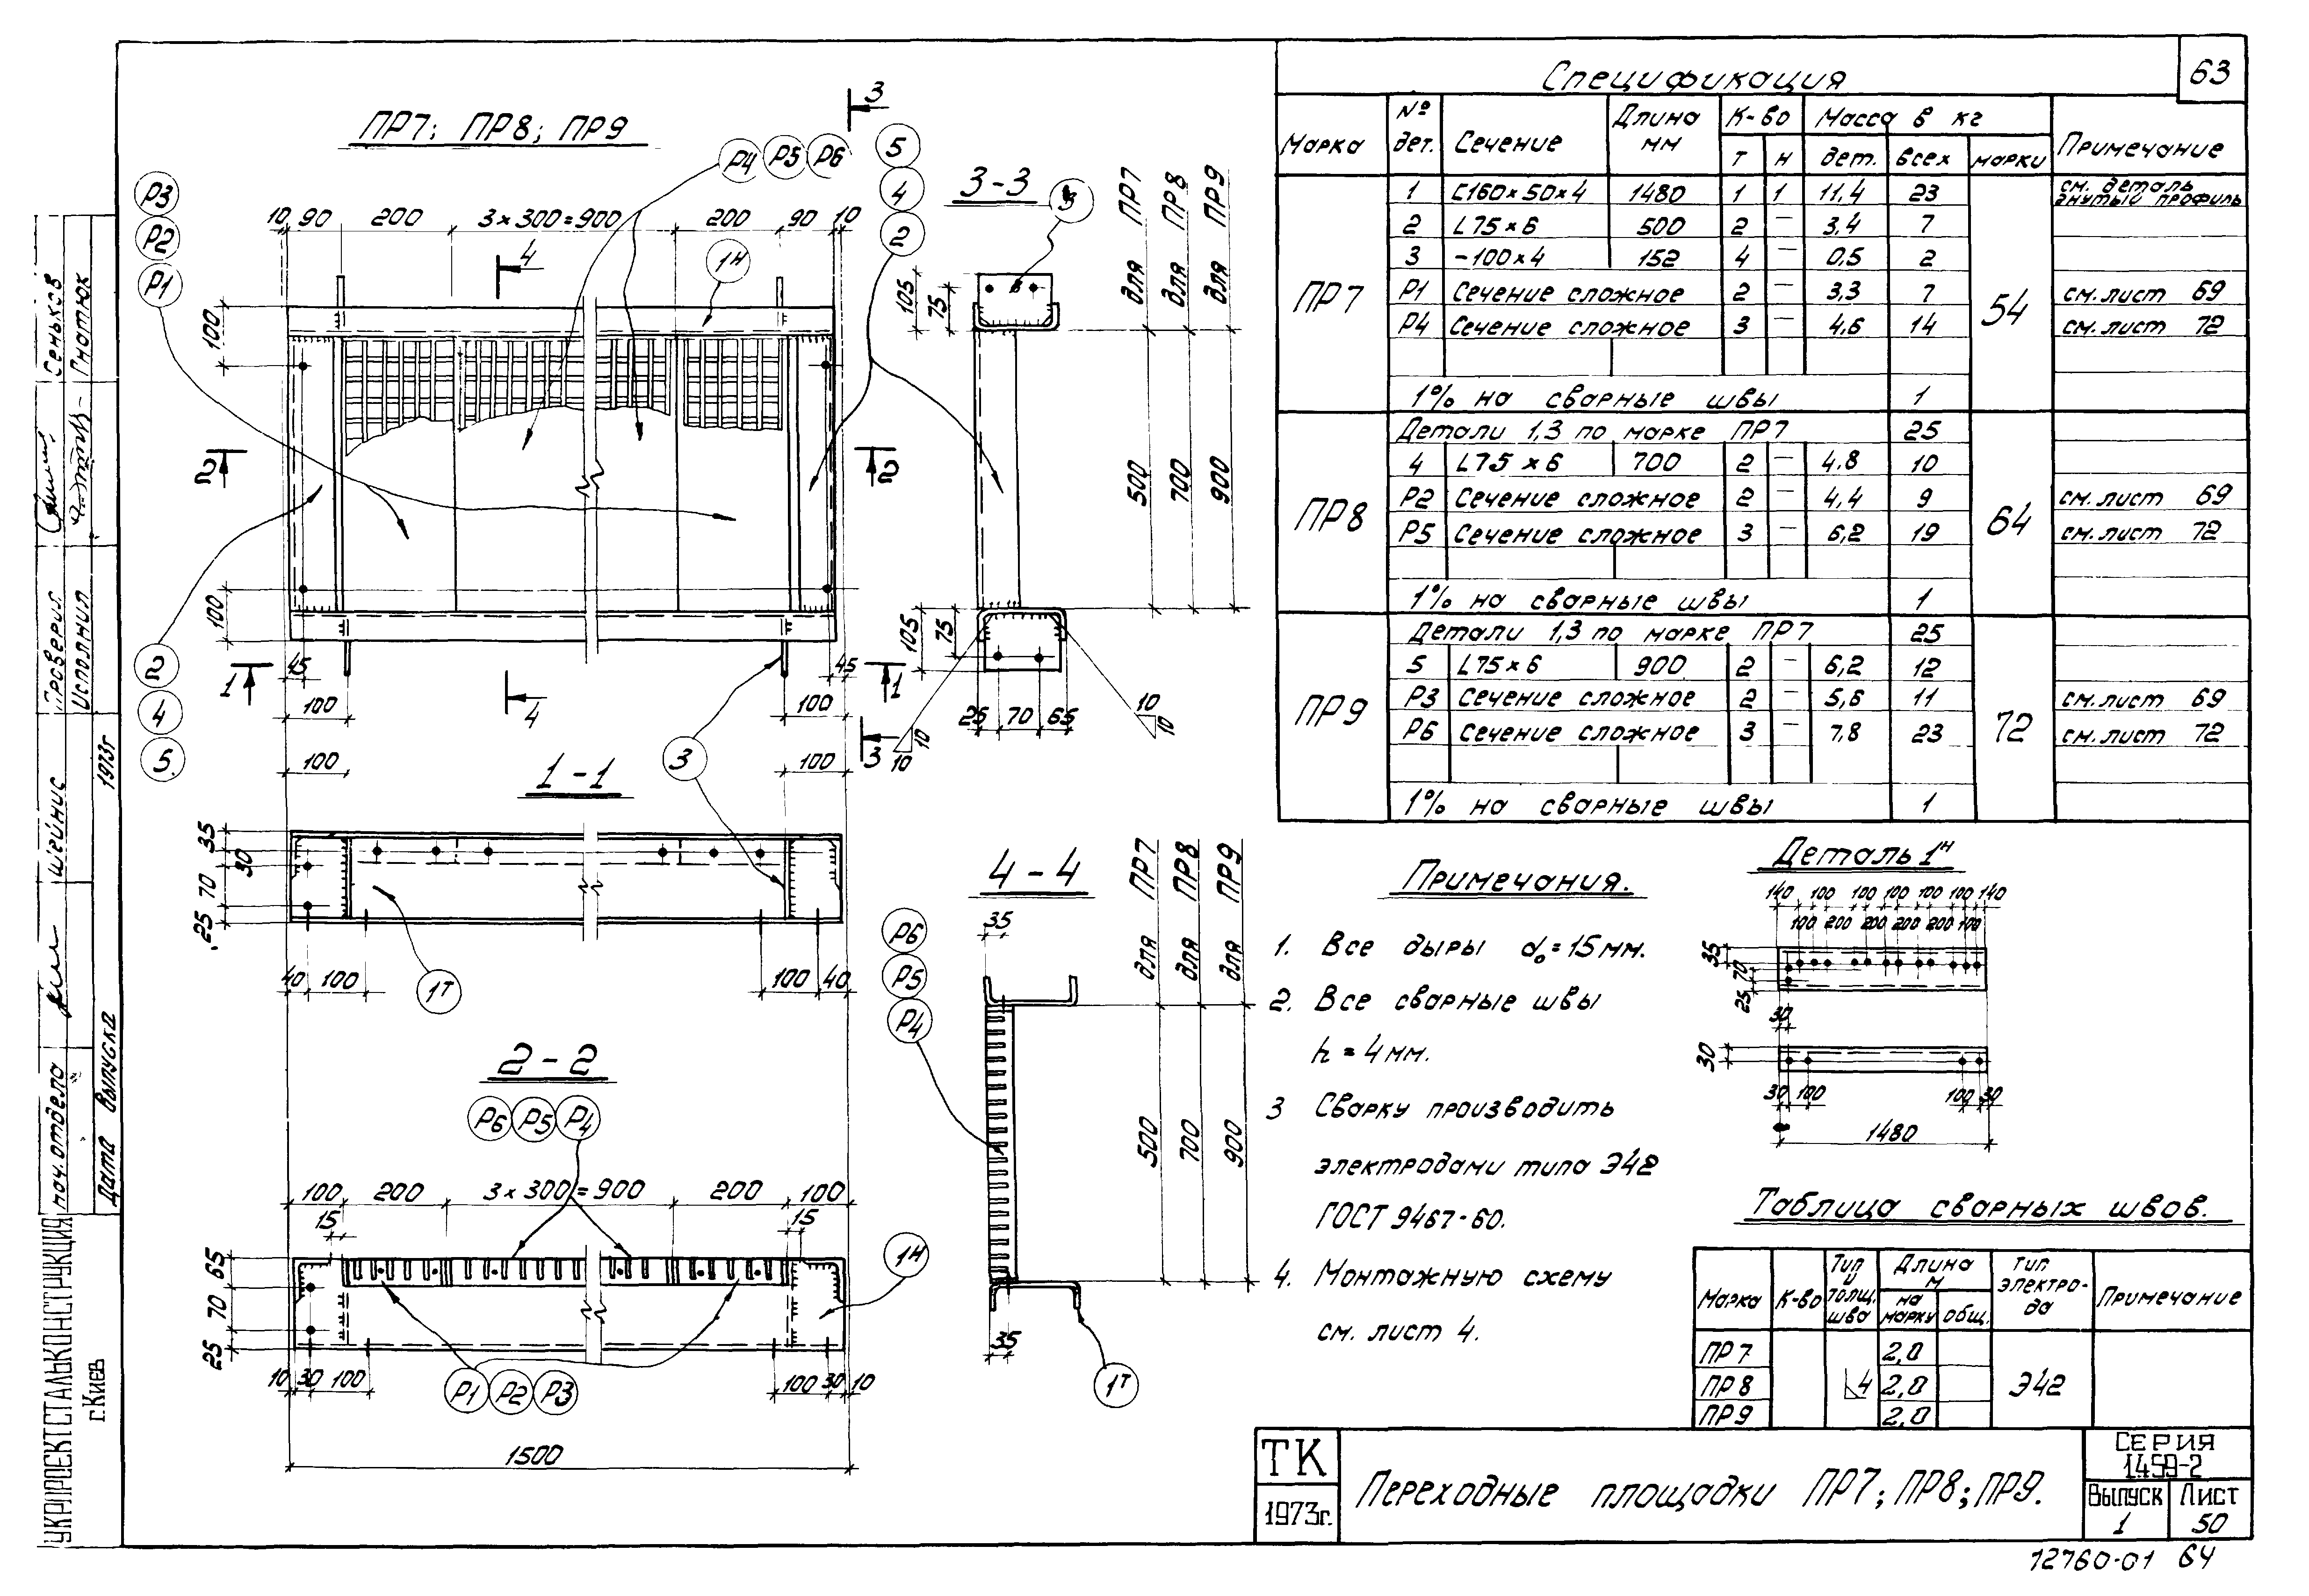 63
ПР7; ПР8; ПР9
Р3
Р2
Р1
Р4 Р5 Р6
5
4
2
3
10 90 200 3×300=900 200 90 10
4
1Н
100
2 2
100
45 45
1 1
100 4 100
2
4
5
3
3
3-3
3
для ПР7
для ПР8
для ПР9
105
75
500
700
900
105
75
25 70 65
10
10
10
10
1-1
100 100
35
30
70
25
40 100 100 40
1Т
2-2
Р6 Р5 Р4
100 200 3×300=900 200 100
15 15
65
70
25
1Н
10 30 100 100 30 10
Р1 Р2 Р3
1500
4-4
35
для ПР7
для ПР8
для ПР9
Р6
Р5
Р4
500
700
900
35
1Т
Спецификация
Марка № дет. Сечение Длина мм К-во Масса в кг Примечание
т н дет. всех марки
ПР7 54
1 С160×50×4 1480 1 1 11,4 23 см. деталь гнутый профиль
2 L75×6 500 2 — 3,4 7
3 -100×4 152 4 — 0,5 2
Р1 Сечение сложное 2 — 3,3 7 см. лист 69
Р4 Сечение сложное 3 — 4,6 14 см. лист 72
1% на сварные швы 1
ПР8 64
Детали 1,3 по марке ПР7 25
4 L75×6 700 2 — 4,8 10
Р2 Сечение сложное 2 — 4,4 9 см. лист 69
Р5 Сечение сложное 3 — 6,2 19 см. лист 72
1% на сварные швы 1
ПР9 72
Детали 1,3 по марке ПР7 25
5 L75×6 900 2 — 6,2 12
Р3 Сечение сложное 2 — 5,6 11 см. лист 69
Р6 Сечение сложное 3 — 7,8 23 см. лист 72
1% на сварные швы 1
Примечания.
1. Все дыры d₀=15мм.
2. Все сварные швы
h=4мм.
3 Сварку производить
электродами типа Э42
ГОСТ 9467-60.
4. Монтажную схему
см. лист 4.
Деталь 1Н
140 100 100 100 100 100 140
100 200 200 200 200 100
35
70
25
30
30
30 100 100 30
1480
Таблица сварных швов.
Марка К-во Тип и толщ. шва Длина м Тип электрода Примечание
на марку общ.
ПР7 2,0
ПР8 4 2,0 Э42
ПР9 2,0
ТК
1973г.
Переходные площадки ПР7; ПР8; ПР9.
СЕРИЯ
1.459-2
Выпуск Лист
1 50
12760-01 64
УКРПРОЕКТСТАЛЬКОНСТРУКЦИЯ
г. Киев
нач. отдела Шейнис
Дата выпуска 1973г
Проверил Сеньков
Исполнил Гнатюк